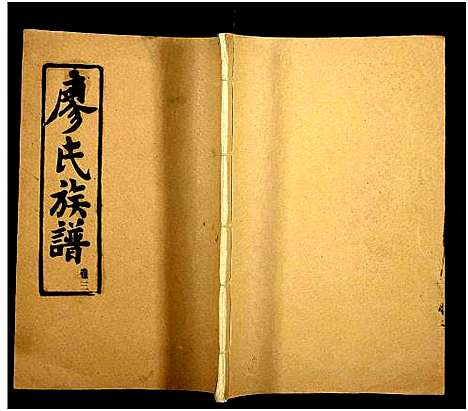 廖氏族譜
卷三